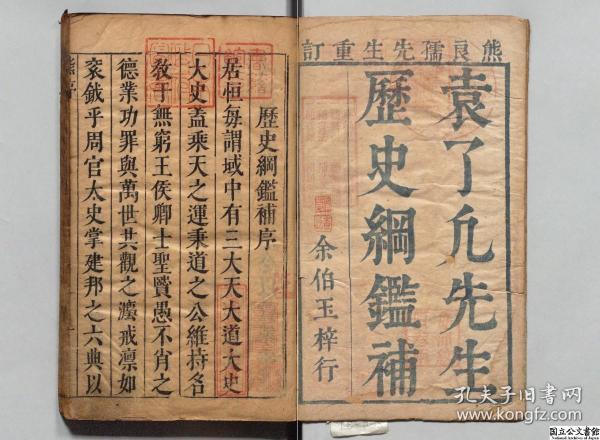 熊良孺先生重訂
袁了凡先生
歷史綱鑑補
余伯玉梓行
歷史綱鑑補序
居恒每謂域中有三大天大道大史
大史蓋乘天之運秉道之公維持名
教于無窮王侯卿士聖賢愚不肖之
德業功罪與萬世共觀之灋戒凛如
衮鉞乎周官太史掌建邦之六典以
熊序
孔夫子旧书网
www.kongfz.com
国立公文書館
National Archives of Japan